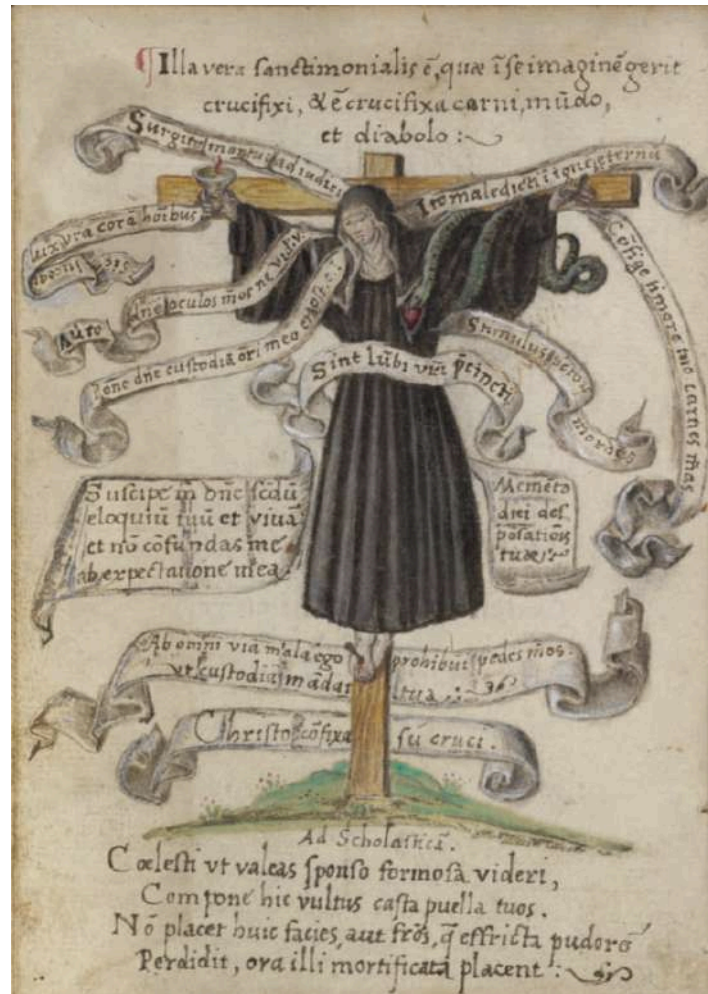 ¶Illa vera sanctimonialis ē, quæ ī se imaginē gerit
crucifixi, & ē crucifixa carni, mūdo,
et diabolo :~
Surgite mortui ad iudiciū
Ite maledicti ī ignē eternū
lux vra corā hoībus
Sic luceat
Auerte
dn̄e oculos mōs ne vid
Pone dn̄e custodiā ori meo
Sint lūbi vr̄i p̄cincti
Stimulus
Cōfige timore tuo carnes mas
Suscipe m dn̄e scdū
eloquiū tuū et viuā
et nō cōfundas me
ab expectatione mea
Memēto
diei des
pōsationis
tuæ
Ab omni via mala ego prohibui pedes mōs.
vt custodiā māda tua
Christo cōfixa sū cruci.
Ad Scholasticā.
Cœlesti vt valeas sponso formosa videri,
Compone hic vultus casta puella tuos.
Nō placet huic facies, aut frōs, q̄ effricta pudorē
Perdidit, ora illi mortificata placent :~